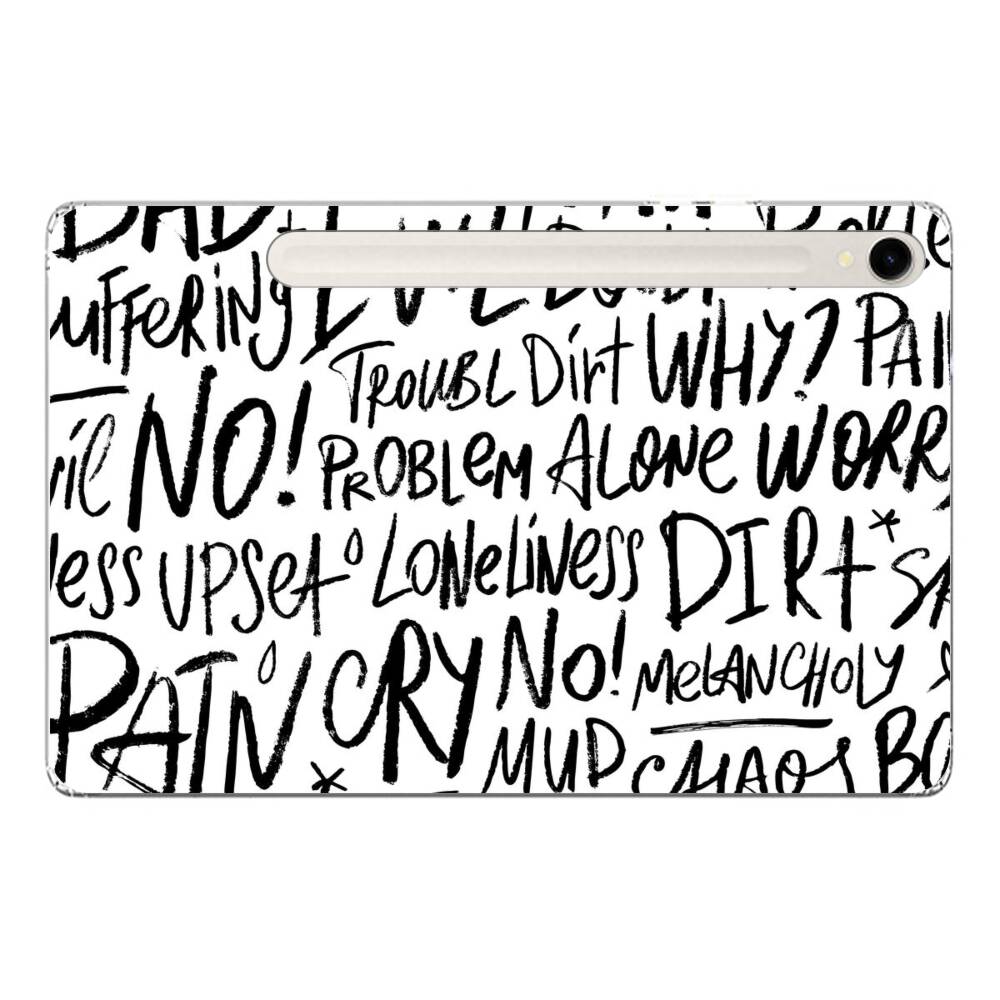 BAD
UFFERING EVIL
TROUBL DIRT WHY? PAI
VIL NO! PROBLEM ALONE WORR
LESS UPSET LONELINESS DIRT* SA
PAIN CRY NO! MELANCHOLY
* MUD CHAOS BO